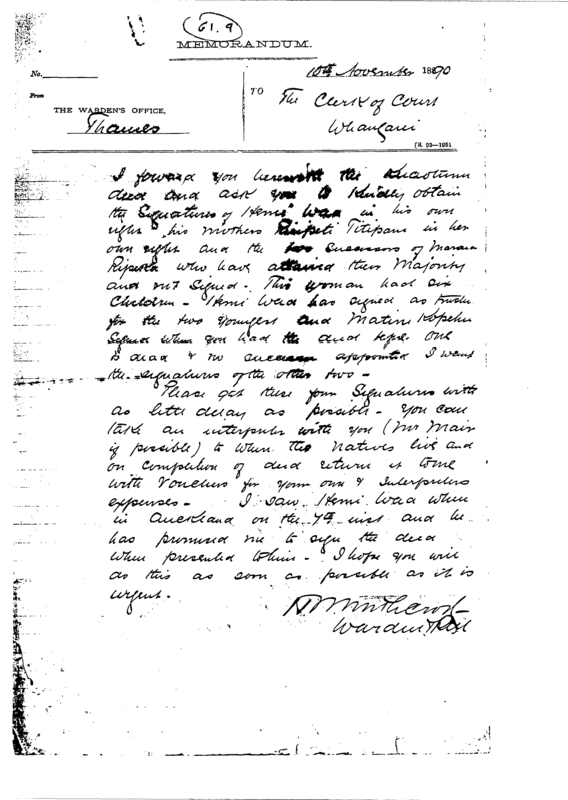 61.9
MEMORANDUM.
No.
10th November 1890
From
TO
THE WARDEN'S OFFICE,
Thames
The Clerk of Court
Whangarei
I forward you herewith the Kuaotunu
deed and ask you to Kindly obtain
the Signatures of Hemi in his own
right, his mothers Titipana in her
own right and the two Successors of
who have attained their Majority
and not Signed. This woman had six
Children - Hemi has signed as trustee
for the two youngest and Matini
Signed when you had the deed before one
is dead & no successor appointed I want
the signatures of the other two -
Please get these four Signatures with
as little delay as possible - you can
take an interpreter with you (Mr Mair
if possible) to when the Natives live and
on completion of deed return it to me
with Vouchers for your own & Interpreters
expenses - I saw Hemi when
in Auckland on the 7th inst and he
has promised me to sign the deed
when presented to him - I hope you will
do this as soon as possible as it is
urgent.
Warden